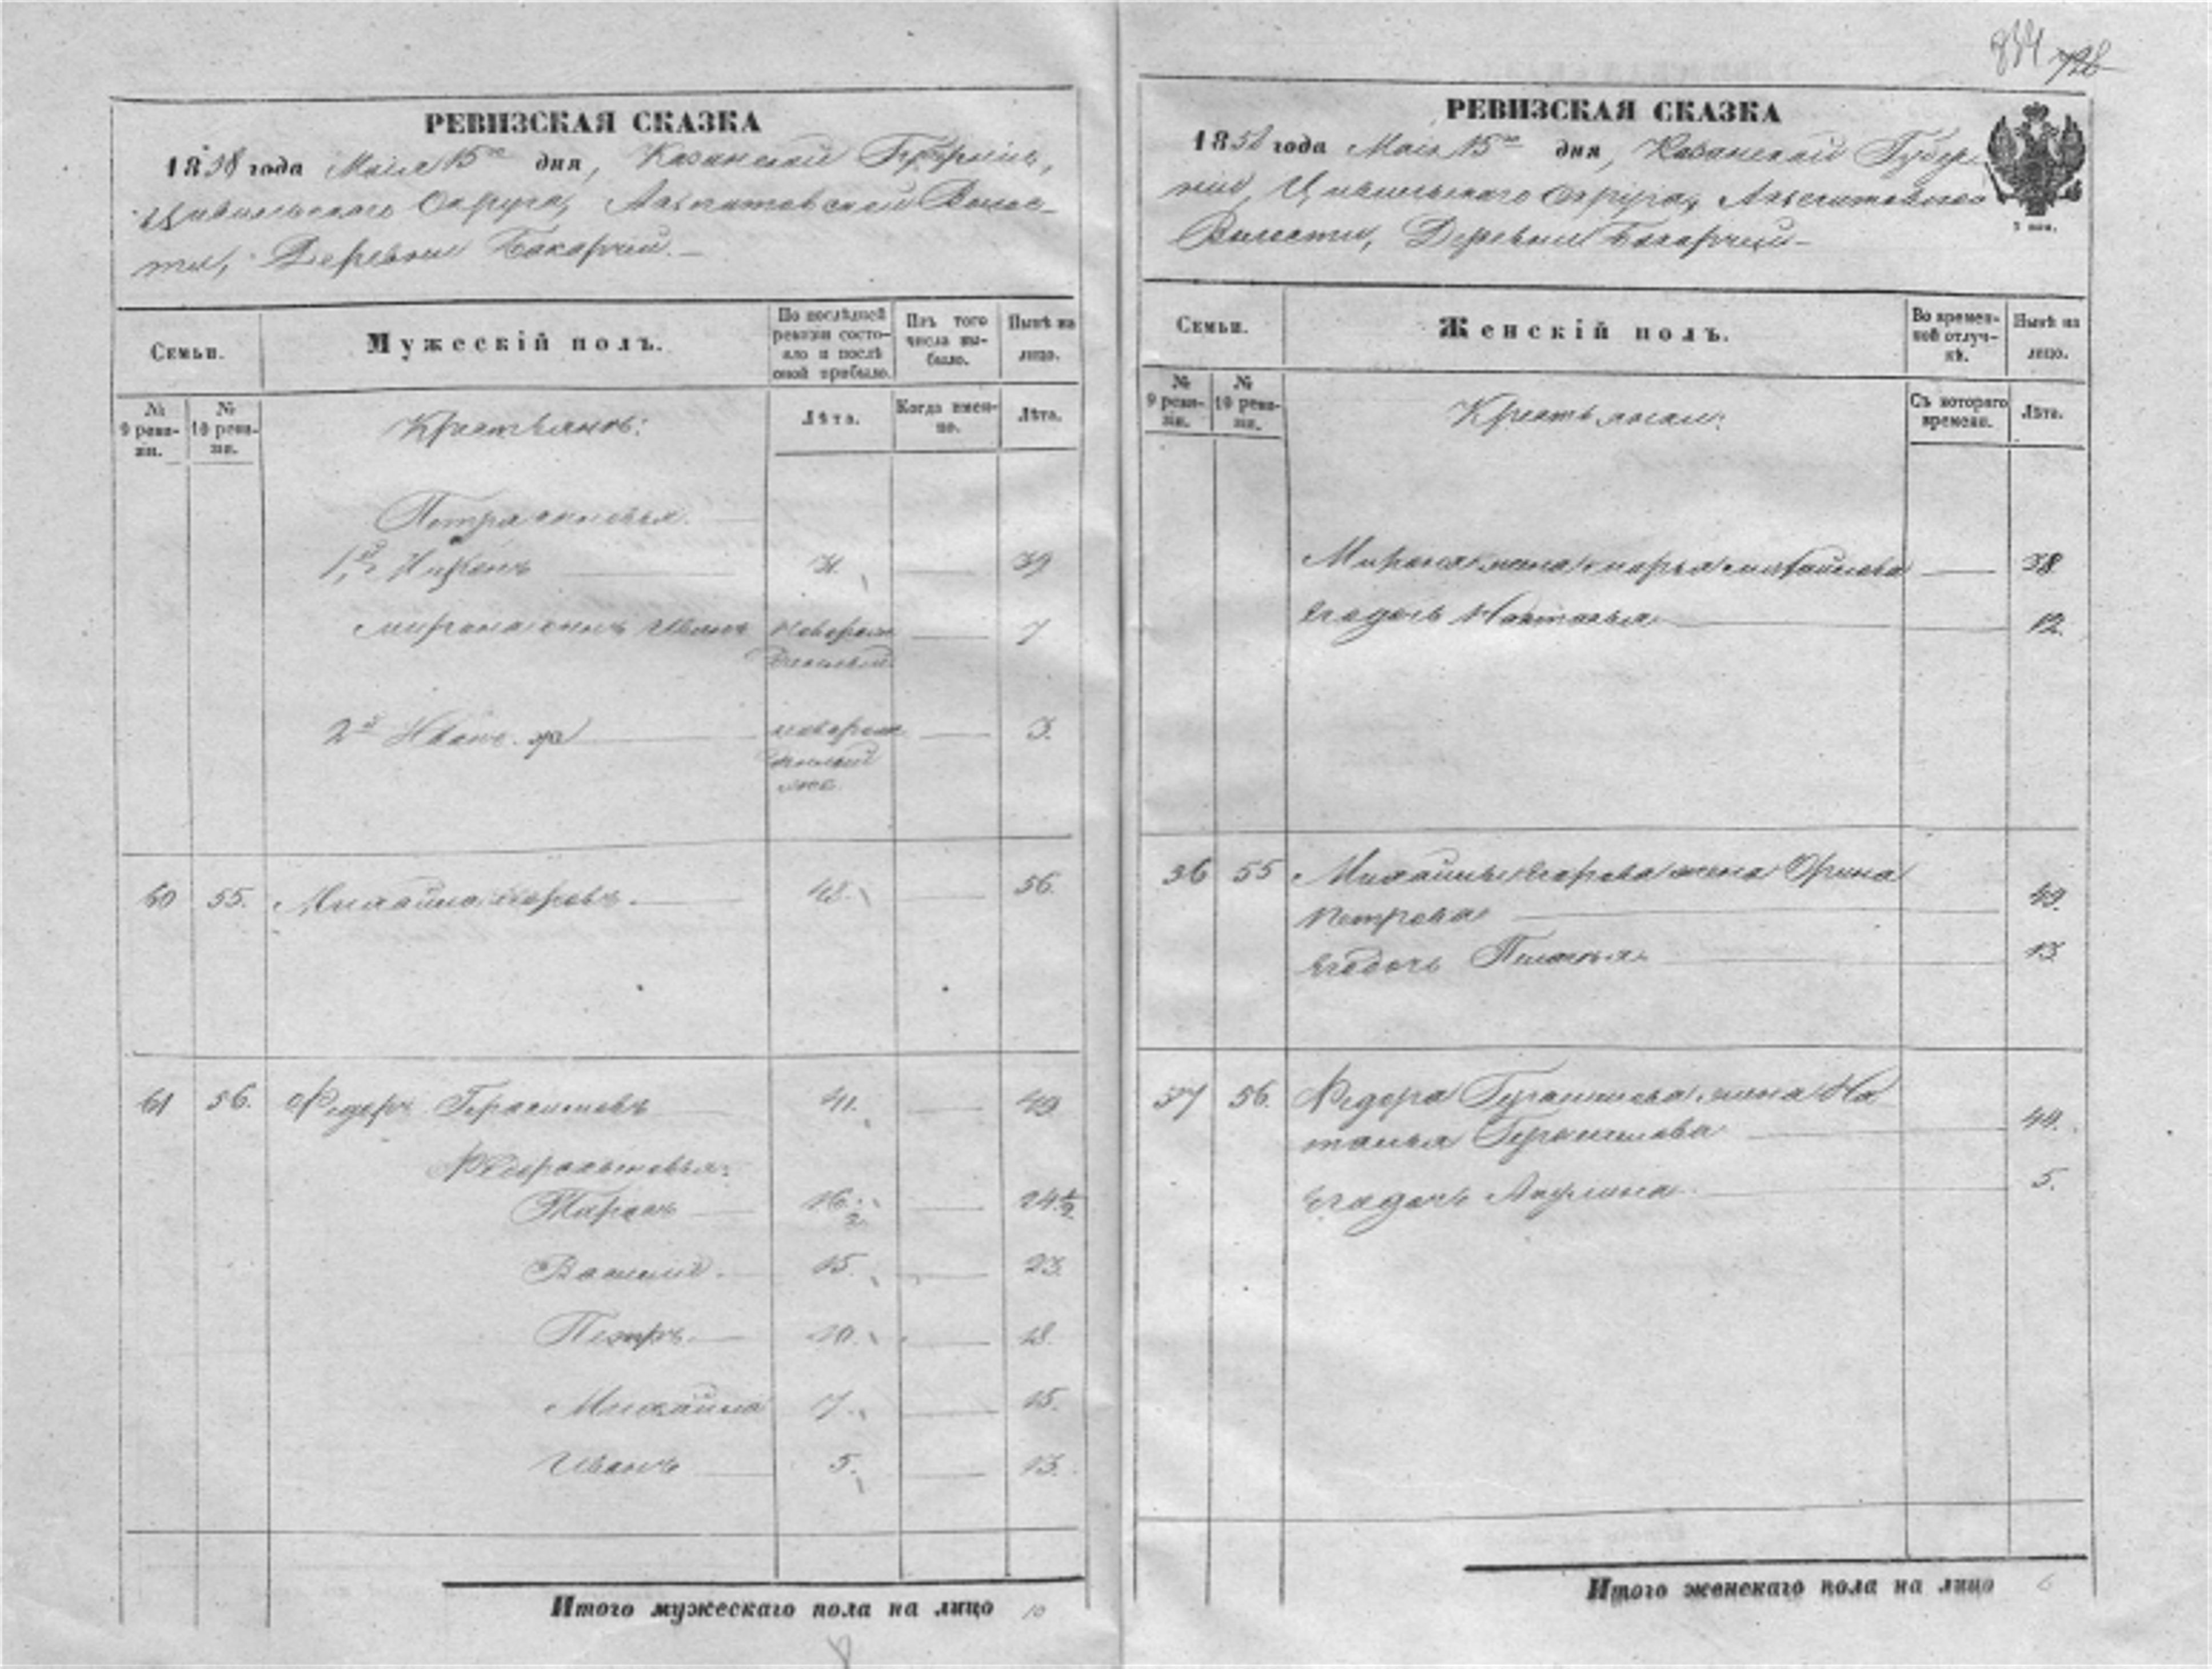 834 728
РЕВИЗСКАЯ СКАЗКА
1858 года Маія 15го дня, Казанской Губерніи,
Цивильскаго Округа, Волос-
ти, Деревни
Семьи.
Мужескій полъ.
По послѣдней ревизіи состо-
яло и послѣ оной прибыло.
Изъ того числа вы-
было.
Нынѣ на лицо.
№ 9 реви-
зіи.
№ 10 реви-
зіи.
Крестьянъ:
Лѣта.
Когда имен-
но.
Лѣта.
Петра сыновья
1й 31. 39
Мирона сынъ Иванъ новорож 7
денный
2й Иванъ новорож 3.
денный
60 55. Михайла Егоровъ 48. 56.
61 56. Федоръ Герасимовъ 41. 49
Федора сыновья:
16 1/2 24 1/2
Василій 15. 23.
Петръ 10. 18.
Михайла 7. 15.
Иванъ 5. 13.
Итого мужескаго пола на лицо 10
РЕВИЗСКАЯ СКАЗКА
1858 года Маія 15го дня, Казанской Губер-
ніи, Цивильскаго Округа,
Волости, Деревни
Семьи.
Женскій полъ.
Во времен-
ной отлуч-
кѣ.
Нынѣ на лицо.
№ 9 реви-
зіи.
№ 10 реви-
зіи.
Съ котораго времени.
Лѣта.
Мирона жена Марья Михайлова 38
Егодочь Настасья 12.
36 55 Михайлы Егорова жена Орина
Петрова 49.
Егодочь 13
37 56. Федора Герасимова жена На
талья Герасимова 44.
Егодочь 5.
Итого женскаго пола на лицо 6